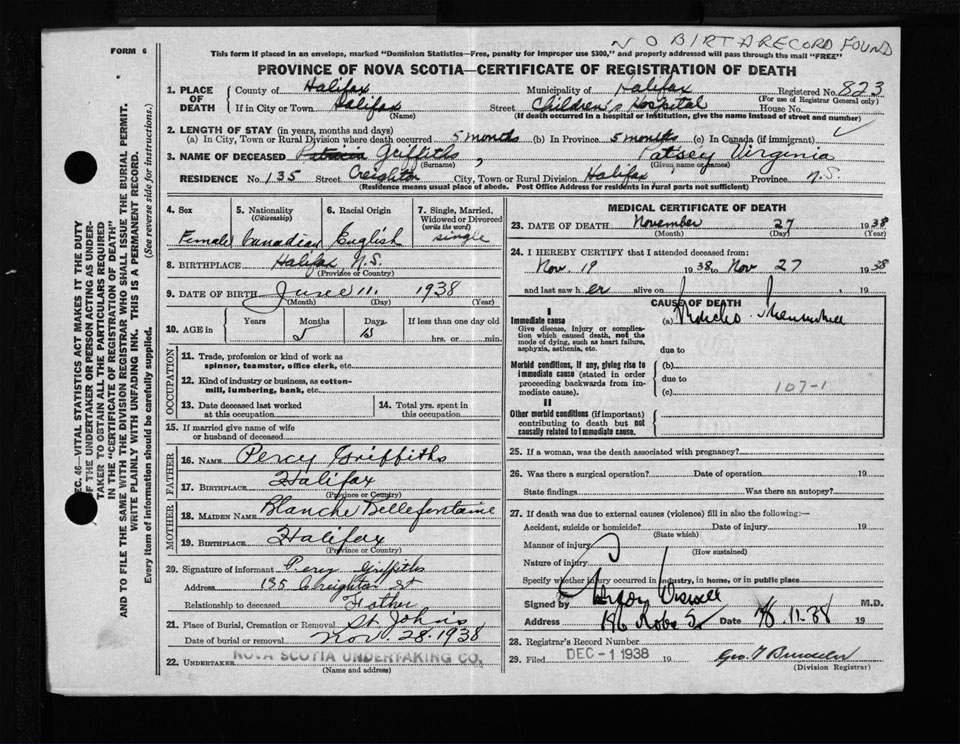 NO BIRTH RECORD FOUND
FORM 6
This form if placed in an envelope, marked "Dominion Statistics—Free, penalty for improper use $300," and properly addressed will pass through the mail "FREE"
PROVINCE OF NOVA SCOTIA—CERTIFICATE OF REGISTRATION OF DEATH
1. PLACE OF DEATH County of Halifax Municipality of Halifax Registered No. 823
(For use of Registrar General only)
If in City or Town Halifax Street Children's Hospital House No.
(Name) (If death occurred in a hospital or institution, give the name instead of street and number)
2. LENGTH OF STAY (in years, months and days)
(a) In City, Town or Rural Division where death occurred 5 months (b) In Province 5 months (c) In Canada (if immigrant)
3. NAME OF DECEASED Patricia Griffiths, Patsey Virginia
(Surname) (Given name or names)
RESIDENCE No. 135 Street Creighton City, Town or Rural Division Halifax Province N.S.
(Residence means usual place of abode. Post Office Address for residents in rural parts not sufficient)
4. Sex
Female
5. Nationality
(Citizenship)
Canadian
6. Racial Origin
English
7. Single, Married, Widowed or Divorced
(write the word)
single
8. BIRTHPLACE Halifax N.S.
(Province or Country)
9. DATE OF BIRTH June 11, 1938
(Month) (Day) (Year)
10. AGE in Years Months Days If less than one day old
5
hrs. or min.
OCCUPATION
11. Trade, profession or kind of work as
spinner, teamster, office clerk, etc.
12. Kind of industry or business, as cotton-
mill, lumbering, bank, etc.
13. Date deceased last worked
at this occupation
14. Total yrs. spent in
this occupation
15. If married give name of wife
or husband of deceased
FATHER
16. NAME Percy Griffiths
17. BIRTHPLACE Halifax
(Province or Country)
MOTHER
18. MAIDEN NAME Blanche Bellefontaine
19. BIRTHPLACE Halifax
(Province or Country)
20. Signature of informant Percy Griffiths
Address 135 Creighton St
Relationship to deceased Father
21. Place of Burial, Cremation or Removal St. John's
Date of burial or removal Nov. 28. 1938
22. UNDERTAKER NOVA SCOTIA UNDERTAKING CO.
(Name and address)
MEDICAL CERTIFICATE OF DEATH
23. DATE OF DEATH November 27 1938
(Month) (Day) (Year)
24. I HEREBY CERTIFY that I attended deceased from:
Nov. 19 1938 to Nov 27 1938
and last saw her alive on , 19
CAUSE OF DEATH
I
Immediate cause
Give disease, injury or complication which caused death, not the mode of dying, such as heart failure, asphyxia, asthenia, etc.
(a) Broncho-
due to
Morbid conditions, if any, giving rise to immediate cause (stated in order proceeding backwards from immediate cause).
(b)
due to
(c) 107-1
II
Other morbid conditions (if important) contributing to death but not causally related to immediate cause.
25. If a woman, was the death associated with pregnancy?
26. Was there a surgical operation? Date of operation 19
State findings Was there an autopsy?
27. If death was due to external causes (violence) fill in also the following:—
Accident, suicide or homicide? Date of injury 19
(State which)
Manner of injury
(How sustained)
Nature of injury
Specify whether injury occurred in industry, in home, or in public place
Signed by Wiswell M.D.
Address 196 Robie St Date 11.38 19
28. Registrar's Record Number
29. Filed DEC -1 1938 19
(Division Registrar)
SEC. 46—VITAL STATISTICS ACT MAKES IT THE DUTY
OF THE UNDERTAKER OR PERSON ACTING AS UNDER-
TAKER TO OBTAIN ALL THE PARTICULARS REQUIRED
IN THE "CERTIFICATE OF REGISTRATION OF DEATH"
AND TO FILE THE SAME WITH THE DIVISION REGISTRAR WHO SHALL ISSUE THE BURIAL PERMIT.
WRITE PLAINLY WITH UNFADING INK. THIS IS A PERMANENT RECORD.
Every item of information should be carefully supplied. (See reverse side for instructions.)